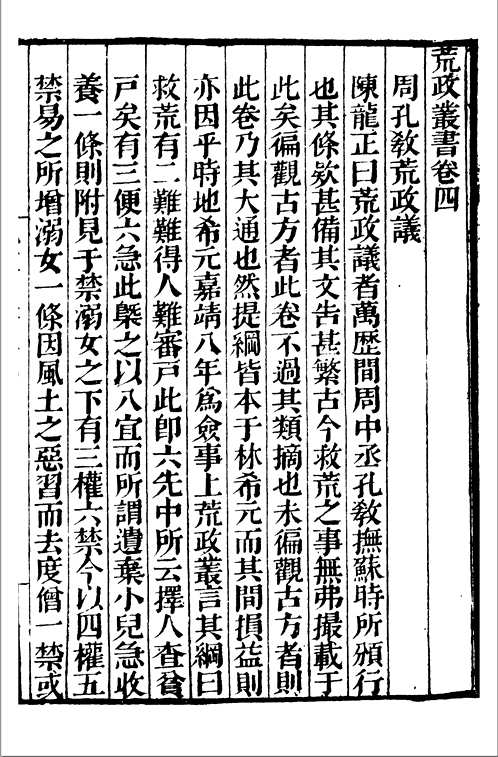 荒政叢書卷四
周孔敎荒政議
陳龍正曰荒政議者萬歴間周中丞孔敎撫蘇時所頒行
也其條欵甚備其文吿甚繁古今救荒之事無弗撮載于
此矣徧觀古方者此卷不過其類摘也未徧觀古方者則
此卷乃其大通也然提綱皆本于林希元而其間損益則
亦因乎時地希元嘉靖八年爲僉事上荒政叢言其綱曰
救荒有二難難得人難審戸此卽六先中所云擇人查貧
戸矣有三便六急此槩之以八宜而所謂遺棄小兒急收
養一條則附見于禁溺女之下有三權六禁今以四權五
禁易之所增溺女一條因風土之惡習而去度僧一禁或